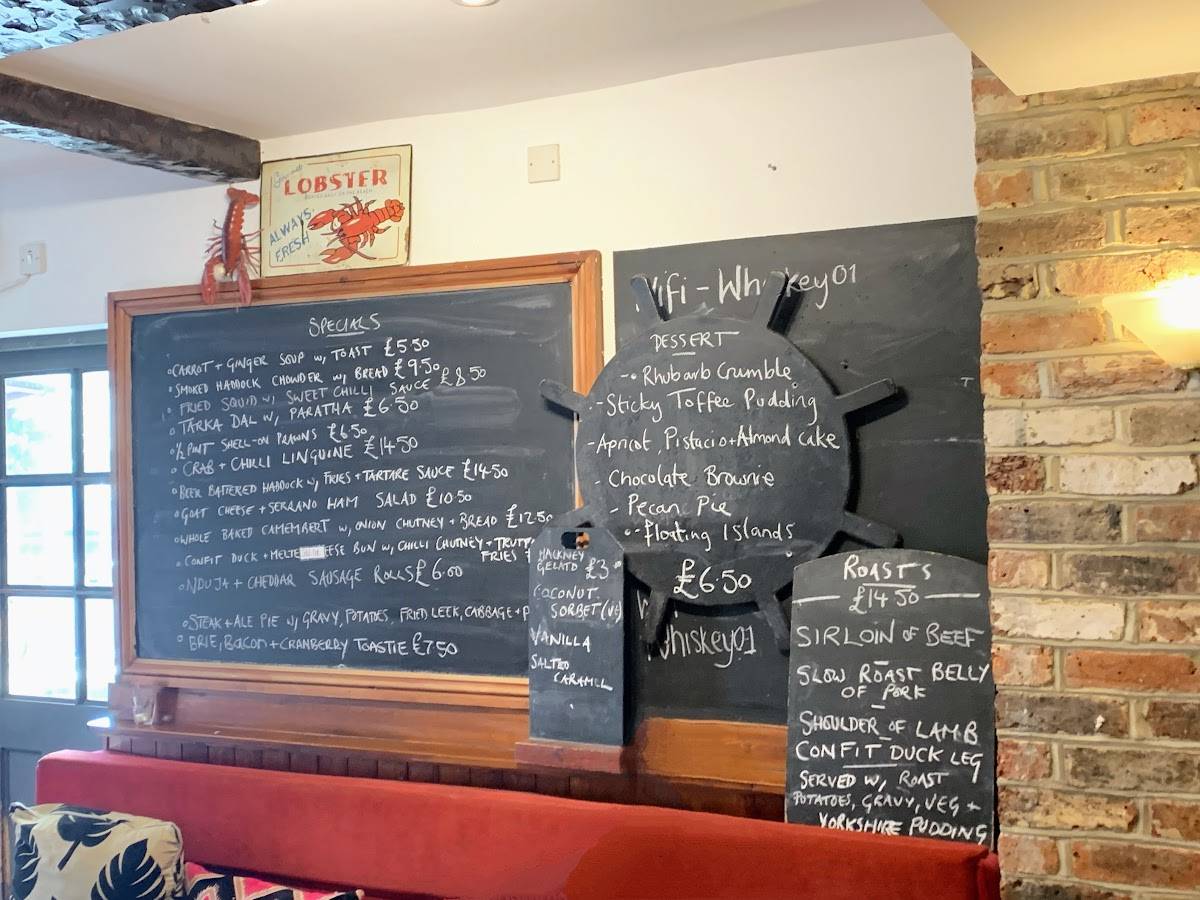 LOBSTER
ALWAYS
FRESH
SPECIALS
CARROT + GINGER SOUP W, TOAST £5.50
SMOKED HADDOCK CHOWDER W, BREAD £9.50
FRIED SQUID W, SWEET CHILLI SAUCE £8.50
TARKA DAL W, PARATHA £6.50
½ PINT SHELL-ON PRAWNS £6.50
CRAB + CHILLI LINGUINE £14.50
BEER BATTERED HADDOCK W, FRIES + TARTARE SAUCE £14.50
GOAT CHEESE + SERRANO HAM SALAD £10.50
WHOLE BAKED CAMEMBERT W, ONION CHUTNEY + BREAD £12.50
CONFIT DUCK + MELTE EESE BUN W, CHILLI CHUTNEY + TRUFF
FRIES £
NDUJA + CHEDDAR SAUSAGE ROLLS £6.00
STEAK + ALE PIE W/ GRAVY, POTATOES, FRIED LEEK, CABBAGE + P
BRIE, BACON + CRANBERRY TOASTIE £7.50
HACKNEY
GELATO £3
COCONUT
SORBET (VE)
VANILLA
SALTED
CARAMEL
Wifi - Whiskey01
DESSERT
- Rhubarb Crumble
- Sticky Toffee Pudding
- Apricot, Pistacio + Almond cake
- Chocolate Brownie
- Pecan Pie
- Floating Islands
£6.50
Whiskey01
ROASTS
£14.50
SIRLOIN OF BEEF
SLOW ROAST BELLY
OF PORK
SHOULDER OF LAMB
CONFIT DUCK LEG
SERVED W, ROAST
POTATOES, GRAVY, VEG +
YORKSHIRE PUDDING